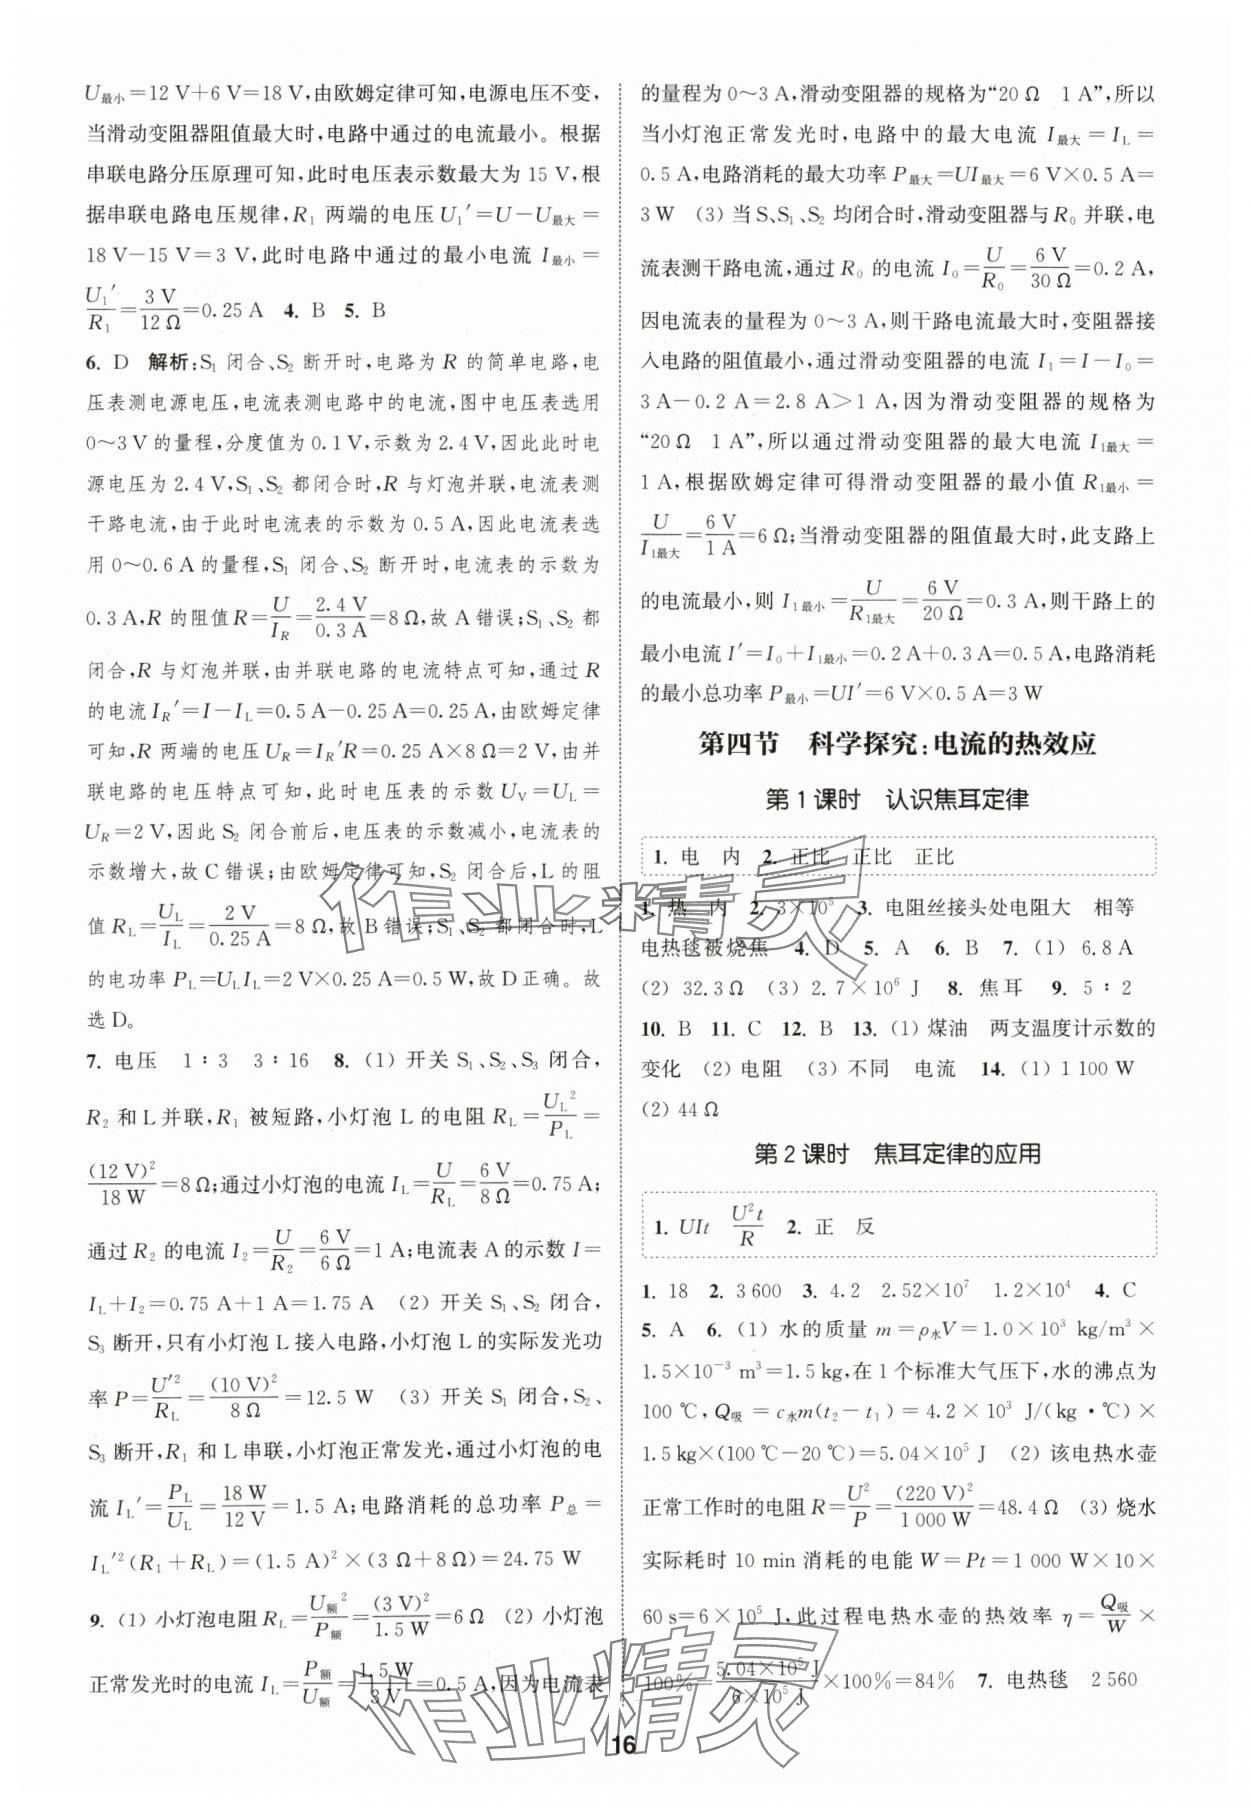 U最小=12 V+6 V=18 V,由欧姆定律可知,电源电压不变,
当滑动变阻器阻值最大时,电路中通过的电流最小。根据
串联电路分压原理可知,此时电压表示数最大为 15 V,根
据串联电路电压规律,R₁ 两端的电压U₁′=U-U最大=
18 V-15 V=3 V,此时电路中通过的最小电流 I最小=
U₁′/R₁=3 V/12 Ω=0.25 A 4. B 5. B
6. D 解析:S₁ 闭合、S₂ 断开时,电路为 R 的简单电路,电
压表测电源电压,电流表测电路中的电流,图中电压表选用
0～3 V的量程,分度值为 0.1 V,示数为 2.4 V,因此此时电
源电压为 2.4 V,S₁、S₂ 都闭合时,R与灯泡并联,电流表测
干路电流,由于此时电流表的示数为 0.5 A,因此电流表选
用 0～0.6 A的量程,S₁ 闭合、S₂ 断开时,电流表的示数为
0.3 A,R 的阻值R=U/I_R=2.4 V/0.3 A=8 Ω,故 A 错误;S₁、S₂ 都
闭合,R 与灯泡并联,由并联电路的电流特点可知,通过 R
的电流 I_R′=I-I_L=0.5 A-0.25 A=0.25 A,由欧姆定律
可知,R 两端的电压 U_R=I_R′R=0.25 A×8 Ω=2 V,由并
联电路的电压特点可知,此时电压表的示数 U_V=U_L=
U_R=2 V,因此 S₂ 闭合前后,电压表的示数减小,电流表的
示数增大,故 C 错误;由欧姆定律可知,S₂ 闭合后,L 的阻
值 R_L=U_L/I_L=2 V/0.25 A=8 Ω,故 B 错误;S₁、S₂ 都闭合时,L
的电功率 P_L=U_LI_L=2 V×0.25 A=0.5 W,故 D 正确。故
选 D。
7. 电压 1∶3 3∶16 8. (1) 开关 S₁、S₂、S₃ 闭合,
R₂ 和 L 并联,R₁ 被短路,小灯泡 L 的电阻 R_L=U_L²/P_L=
(12 V)²/18 W=8 Ω;通过小灯泡的电流 I_L=U/R_L=6 V/8 Ω=0.75 A;
通过 R₂ 的电流 I₂=U/R₂=6 V/6 Ω=1 A;电流表 A 的示数 I=
I_L+I₂=0.75 A+1 A=1.75 A (2) 开关 S₁、S₂ 闭合,
S₃ 断开,只有小灯泡 L 接入电路,小灯泡 L 的实际发光功
率 P=U′²/R_L=(10 V)²/8 Ω=12.5 W (3) 开关 S₁ 闭合,S₂、
S₃ 断开,R₁ 和 L 串联,小灯泡正常发光,通过小灯泡的电
流 I_L′=P_L/U_L=18 W/12 V=1.5 A;电路消耗的总功率 P总=
I_L′²(R₁+R_L)=(1.5 A)²×(3 Ω+8 Ω)=24.75 W
9. (1) 小灯泡电阻 R_L=U额²/P额=(3 V)²/1.5 W=6 Ω (2) 小灯泡
正常发光时的电流 I_L=P额/U额=1.5 W/3 V=0.5 A,因为电流表
的量程为 0～3 A,滑动变阻器的规格为“20 Ω 1 A”,所以
当小灯泡正常发光时,电路中的最大电流 I最大=I_L=
0.5 A,电路消耗的最大功率 P最大=UI最大=6 V×0.5 A=
3 W (3) 当 S、S₁、S₂ 均闭合时,滑动变阻器与 R₀ 并联,电
流表测干路电流,通过 R₀ 的电流 I₀=U/R₀=6 V/30 Ω=0.2 A,
因电流表的量程为 0～3 A,则干路电流最大时,变阻器接
入电路的阻值最小,通过滑动变阻器的电流 I₁=I-I₀=
3 A-0.2 A=2.8 A>1 A,因为滑动变阻器的规格为
“20 Ω 1 A”,所以通过滑动变阻器的最大电流 I₁最大=
1 A,根据欧姆定律可得滑动变阻器的最小值 R₁最小=
U/I₁最大=6 V/1 A=6 Ω;当滑动变阻器的阻值最大时,此支路上
的电流最小,则 I₁最小=U/R₁最大=6 V/20 Ω=0.3 A,则干路上的
最小电流 I′=I₀+I₁最小=0.2 A+0.3 A=0.5 A,电路消耗
的最小总功率 P最小=UI′=6 V×0.5 A=3 W
第四节 科学探究:电流的热效应
第 1 课时 认识焦耳定律
1. 电 内 2. 正比 正比 正比
1. 热 内 2. 3×10⁵ 3. 电阻丝接头处电阻大 相等
电热毯被烧焦 4. D 5. A 6. B 7. (1) 6.8 A
(2) 32.3 Ω (3) 2.7×10⁶ J 8. 焦耳 9. 5∶2
10. B 11. C 12. B 13. (1) 煤油 两支温度计示数的
变化 (2) 电阻 (3) 不同 电流 14. (1) 1 100 W
(2) 44 Ω
第 2 课时 焦耳定律的应用
1. UIt U²t/R 2. 正 反
1. 18 2. 3 600 3. 4.2 2.52×10⁷ 1.2×10⁴ 4. C
5. A 6. (1) 水的质量 m=ρ水V=1.0×10³ kg/m³×
1.5×10⁻³ m³=1.5 kg,在 1 个标准大气压下,水的沸点为
100 ℃,Q吸=c水m(t₂-t₁)=4.2×10³ J/(kg·℃)×
1.5 kg×(100 ℃-20 ℃)=5.04×10⁵ J (2) 该电热水壶
正常工作时的电阻 R=U²/P=(220 V)²/1 000 W=48.4 Ω (3) 烧水
实际耗时 10 min 消耗的电能 W=Pt=1 000 W×10×
60 s=6×10⁵ J,此过程电热水壶的热效率 η=Q吸/W×
100%=5.04×10⁵ J/6×10⁵ J×100%=84% 7. 电热毯 2 560
16
作业精灵
作业精灵